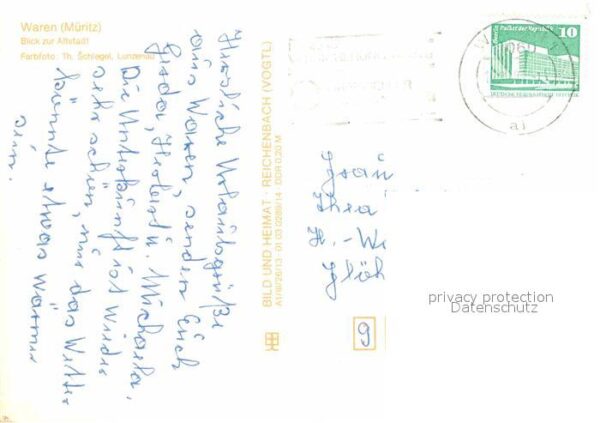 Waren (Müritz)
Blick zur Altstadt
Farbfoto: Th. Schlegel, Lunzenau
Herzliche Urlaubsgrüße
aus Waren, senden Euch
Gerda, Herbert u. Michaela.
Die Unterkunft ist wieder
sehr schön, nur das Wetter
könnte etwas wärmer
sein.
BILD UND HEIMAT · REICHENBACH (VOGTL)
A1/III/26/13 · 01 03 0289/14 · DDR 0,20 M
Palast der Republik
10
W
206
Frau
Thea
H.-We
Glöh
9
privacy protection
Datenschutz